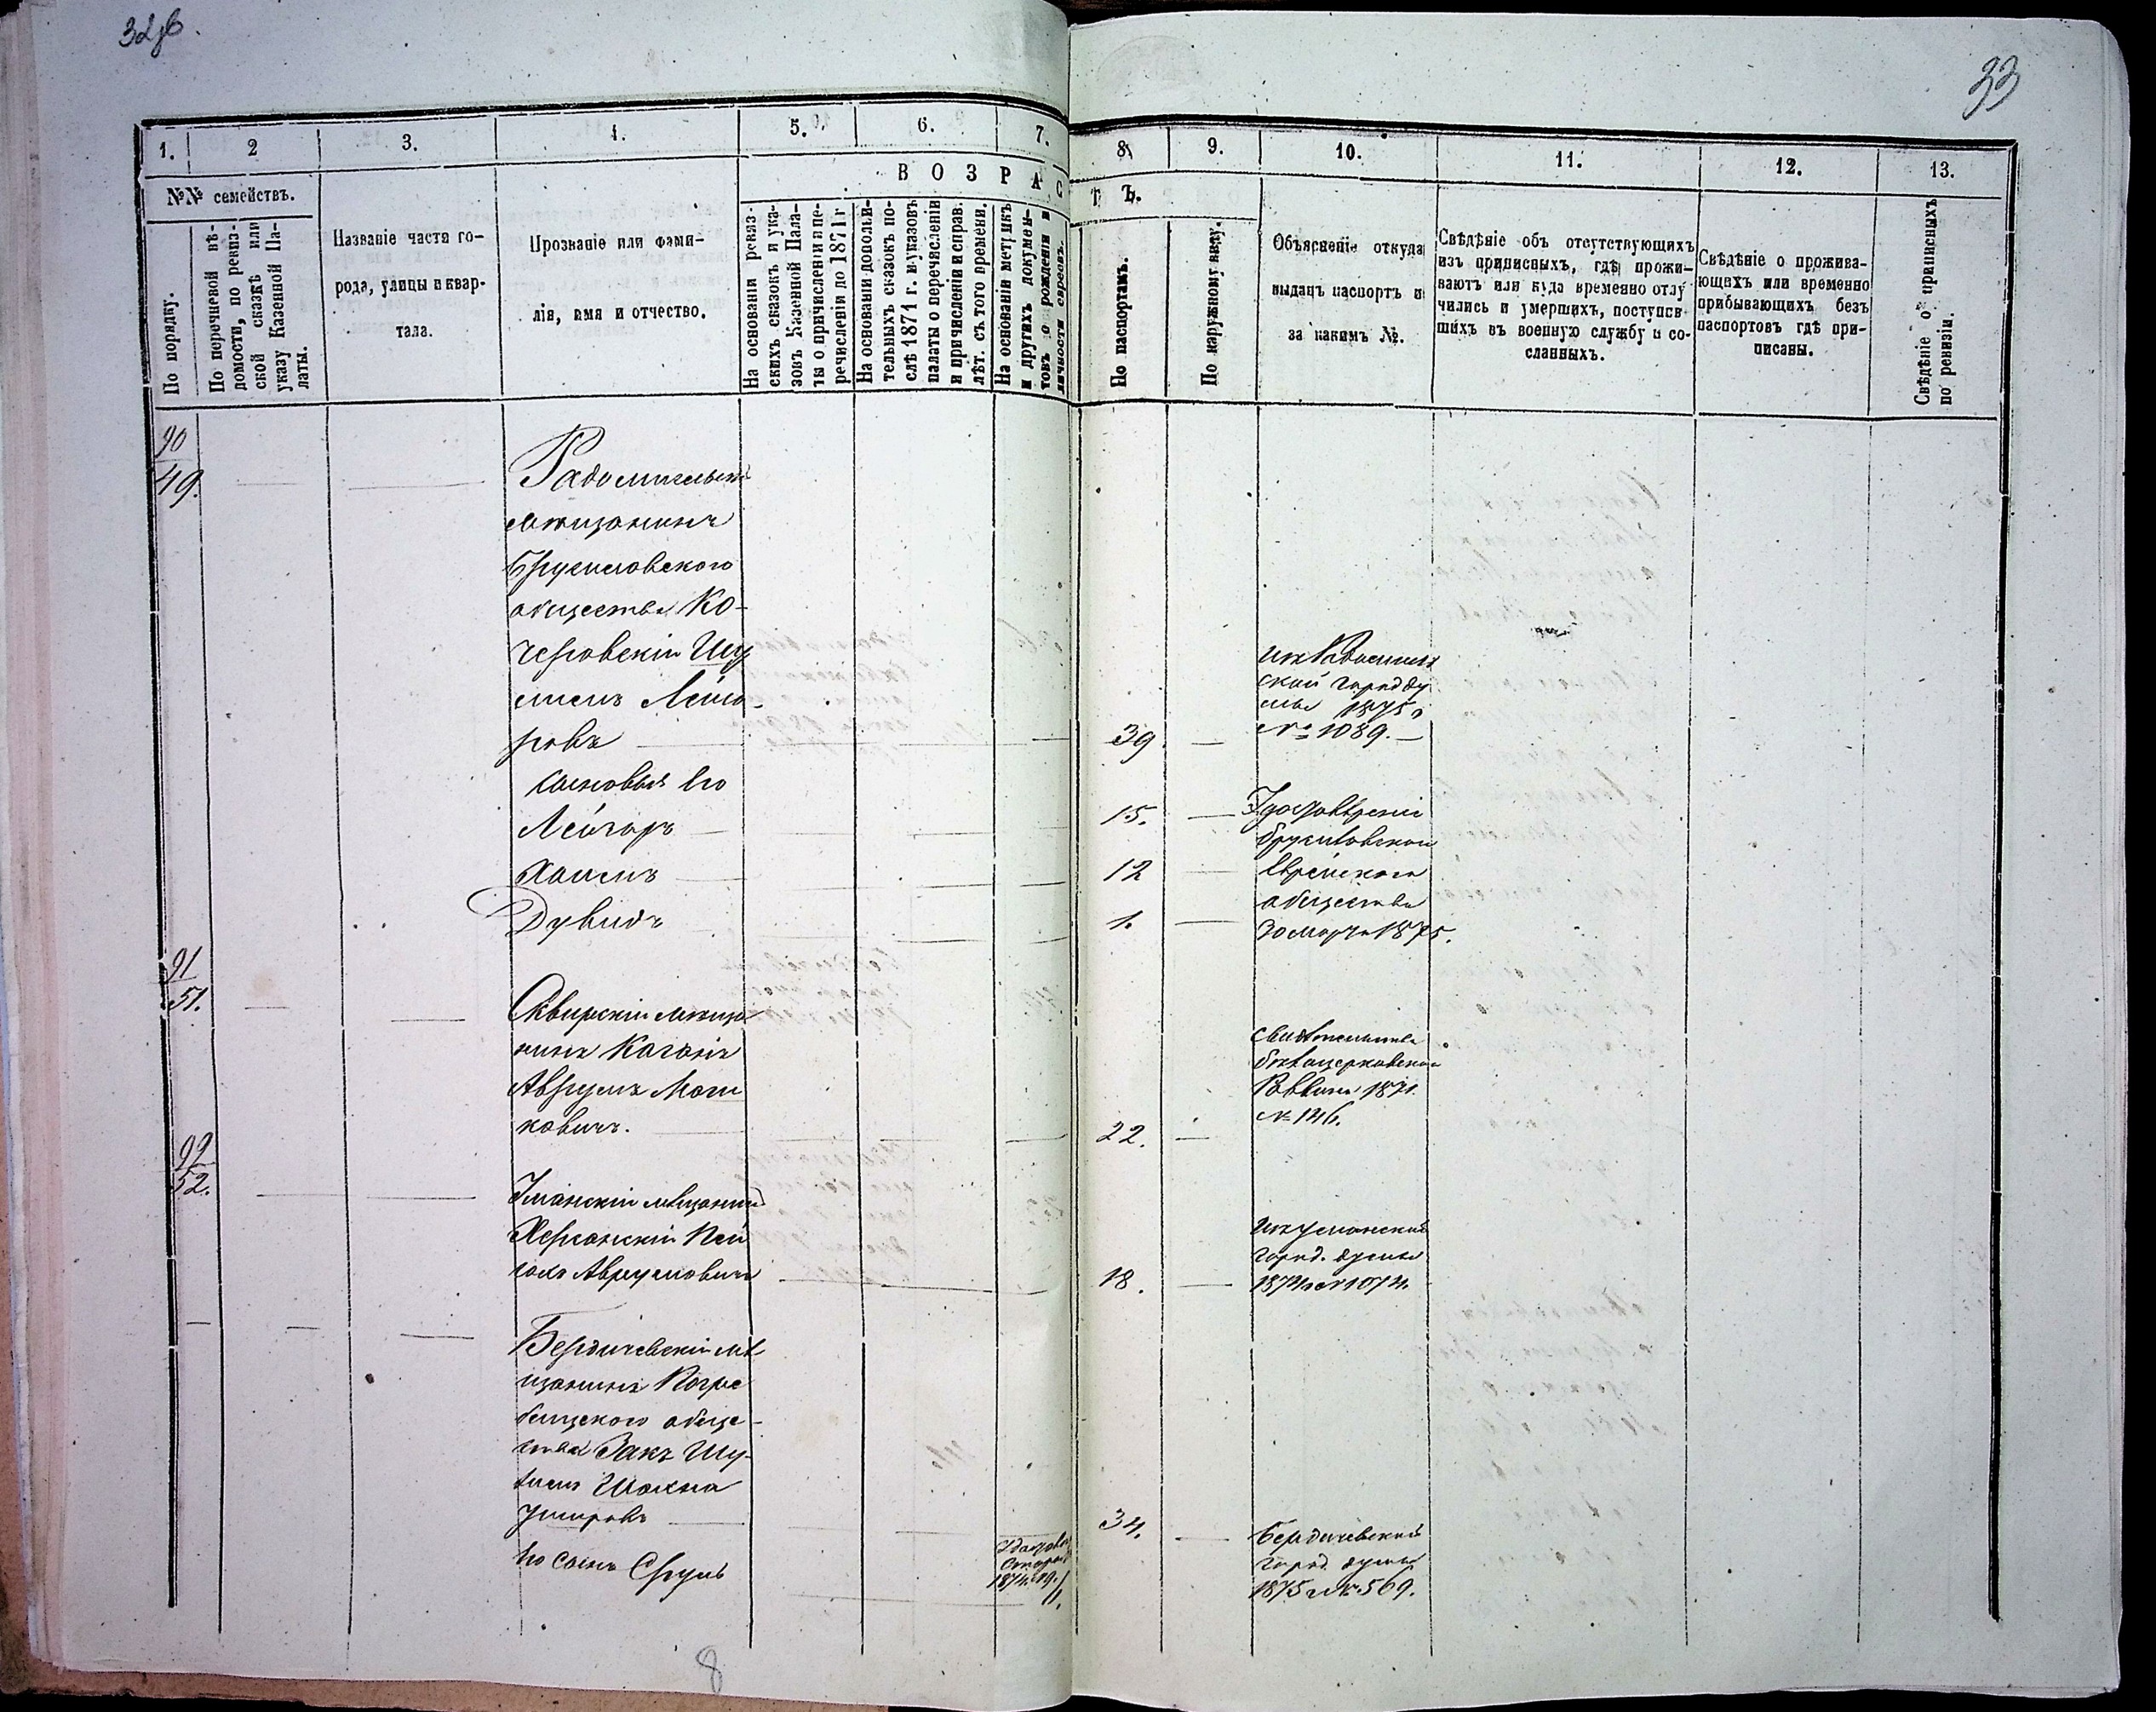 32об.
33
1.
2
3.
4.
5.
6.
7.
8.
9.
10.
11.
12.
13.
№№ семействъ.
ВОЗРАСТЪ.
По порядку.
По перечневой вѣ-
домости, по ревиз-
ской сказкѣ или
указу Казенной Па-
латы.
Названіе части го-
рода, улицы и квар-
тала.
Прозваніе или фами-
лія, имя и отчество.
На основаніи ревиз-
скихъ сказокъ и ука-
зовъ Казенной Пала-
ты о причисленіи и пе-
речисленіи до 1871 г
На основаніи дополни-
тельныхъ сказокъ по-
слѣ 1871 г. и указовъ
палаты о перечисленіи
и причисленіи и справ.
лѣт. съ того времени.
На основаніи метрикъ
и другихъ докумен-
товъ о рожденіи и
личности евреевъ.
По паспортамъ.
По наружному виду.
Объясненіе откуда
выданъ паспортъ и
за какимъ №.
Свѣдѣніе объ отсутствующихъ
изъ приписныхъ, гдѣ прожи-
ваютъ или куда временно отлу
чились и умершихъ, поступив
шихъ въ военную службу и со-
сланныхъ.
Свѣдѣніе о прожива-
ющихъ или временно
прибывающихъ безъ
паспортовъ гдѣ при-
писаны.
Свѣдѣніе о приписныхъ
по ревизіи.
90
49.
Радомысльскій
мѣщанинъ
Брусиловского
общества Ко-
черовскій Шу
лимъ Лейзо-
ровъ
39.
изъ Радомысль
ской город ду
мы 1875 г
№ 1089.
Сыновья его
Лейзоръ
15.
Хаимъ
12
Дувидъ
1.
Удостовѣреніе
Брусиловского
Еврейского
общества
30 марта 1875.
91
51.
Сквирскій мѣща
нинъ Каганъ
Аврумъ Мош
ковичъ.
22.
Свидѣтельство
бѣлоцерковского
Раввина 1871.
№ 146.
92
52.
Уманскій мѣщанинъ
Херсонскій
Аврумовичъ
18.
изъ Уманской
город. думы
1874 г № 1074.
Бердичевскій мѣ
щанинъ Погре
бищского обще-
ства Закъ Шу-
лимъ Шахна
34.
Его Сынъ Сруль
1874. №19.
Бердичевской
город. думы
1875 г № 569.
8